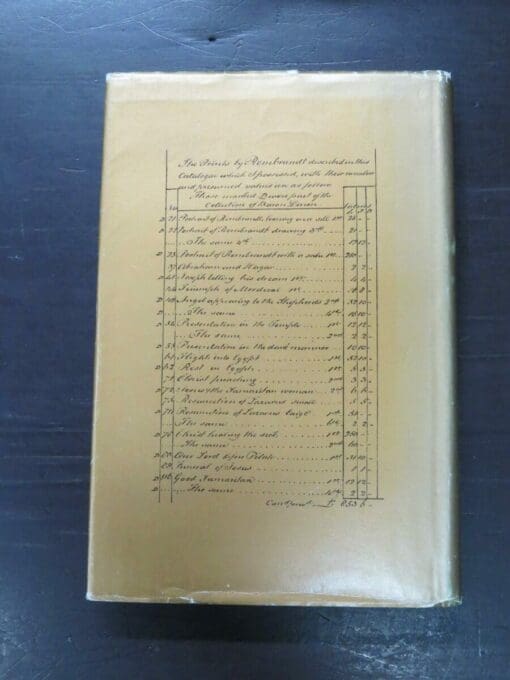 The Prints by Rembrandt described in this
Catalogue which I possessed, with their
and presumed values are as follow
Those marked D were part of the
Collection of Baron Denon
D 21 Portrait of Rembrandt, leaning on a sill 1st
D 22 Portrait of Rembrandt drawing
The same 4th
D 23 Portrait of Rembrandt with a sabre 1st
37 Abraham and Hagar 2 2 -
D 41 Joseph telling his dream 1st 4 4 -
Triumph of Mordecai 1st
D Angel appearing to the Shepherds 2nd 52 10 -
D The same 10 10 -
D Presentation in the Temple 1st 12 12 -
The same 2nd 2 2 -
D 55 Presentation in the dark manner 10 10 -
Flight into Egypt 1st 52 10 -
D Rest in Egypt 1st 5 5 -
Christ preaching 2nd 3 3 -
D Jesus & the Samaritan woman 2nd 6 6 -
Resurrection of Lazarus small 5 5 -
D Resurrection of Lazarus large 1st
The same 2 2 -
D Christ healing the sick 1st
The same 2nd
D Our Lord before Pilate 1st
D Funeral of Jesus 1 1 -
D Good Samaritan 1st 12 12 -
D The same 2 2 -
Card forwd £ 853 6 -